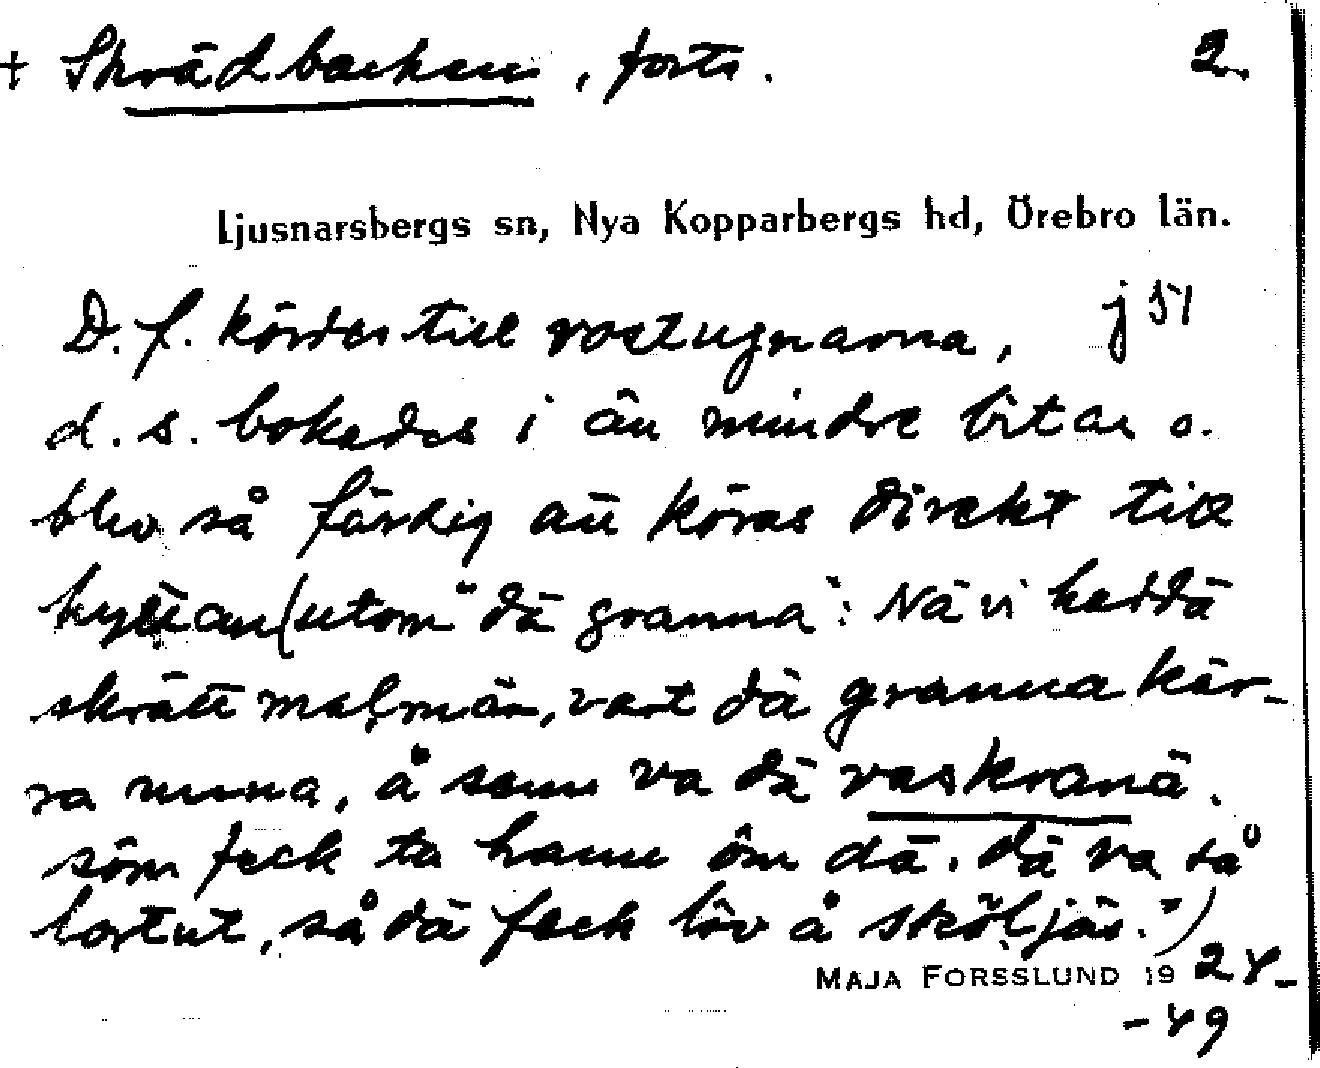 + Skrädbacken, forts. 2.
Ljusnarsbergs sn, Nya Kopparbergs hd, Örebro län.
D. f. kördes till rostugnarna, j 51
d. s. bokades i än mindre bitar o.
blev så färdig att köras direkt till
hyttan (utom "dä granna": Nä vi haddä
skrätt malmän, vart dä granna kär-
ra unna, å senn va dä vaskranä
söm feck ta hann öm dä. dä va så
lortut, så dä feck löv å sköljäs.")
MAJA FORSSLUND 19 24-
-49